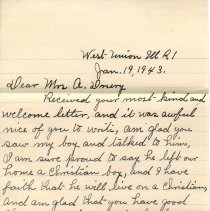 West Union Ill R1
Jan. 19, 1943.
Dear Mrs A. Drury
Received your most kind and
welcome letter, and it was awful
nice of you to write, am glad you
saw my boy and talked to him,
I am sure proud to say he left our
home a Christian boy, and I have
faith that he will, live on a Christian,
and am glad that you have good